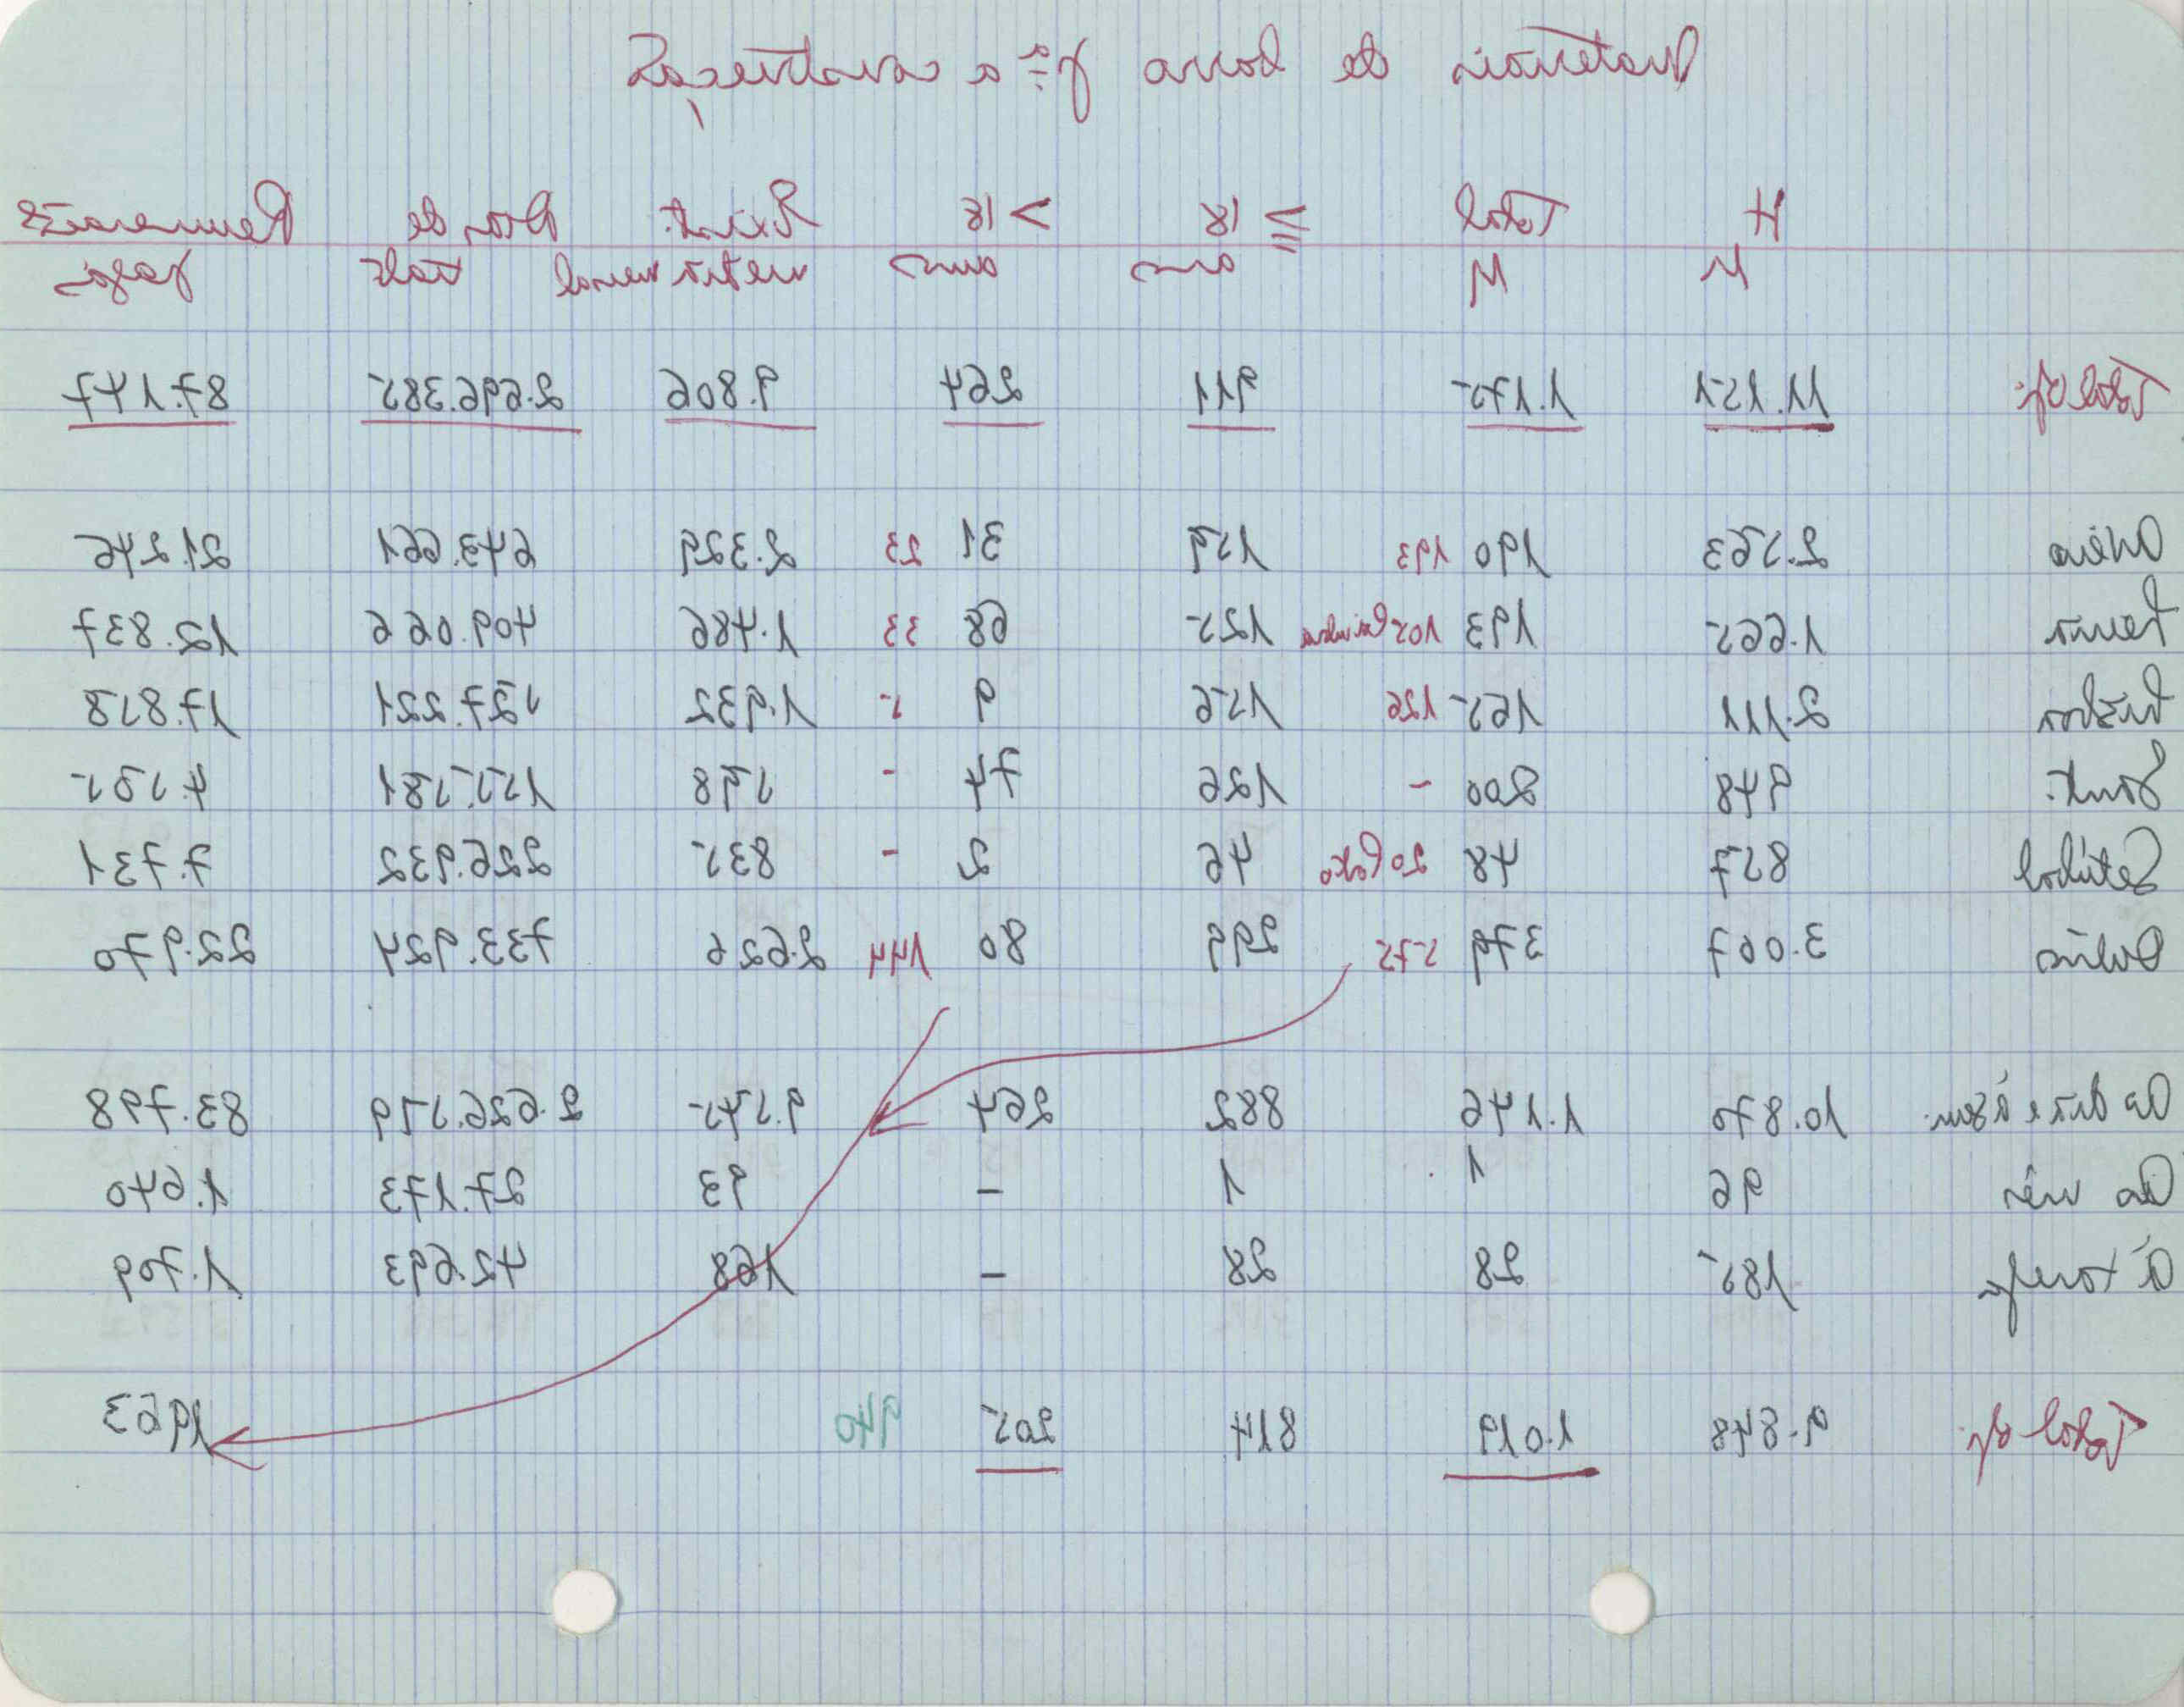 Materiais de barro pª a construção
H Total ≦ 18 > 18 Exist. Dias de Remunerações
M M anos anos média mensal trab. pagas
Total gl: 11.151 1.175 911 264 9.806 2.696.385 87.147
Aveiro 2.563 190 193 159 31 23 2.329 643.661 21.246
Leiria 1.665 193 105 Coimbra 125 68 33 1.486 409.066 12.837
Lisboa 2.111 165 126 156 9 5 1.932 527.221 17.858
Sant. 948 200 - 126 74 - 598 155.581 4.505
Setúbal 857 48 20 Porto 46 2 - 835 226.932 7.731
Outros 3.007 379 575 299 80 144 2.626 733.924 22.970
Ao dia e à sem. 10.870 1.146 882 264 9.545 2.626.519 83.798
Ao mês 96 1 1 - 93 27.173 1.640
À tarefa 185 28 28 - 168 42.693 1.709
Total gl: 9.848 1.019 814 205 940 1963